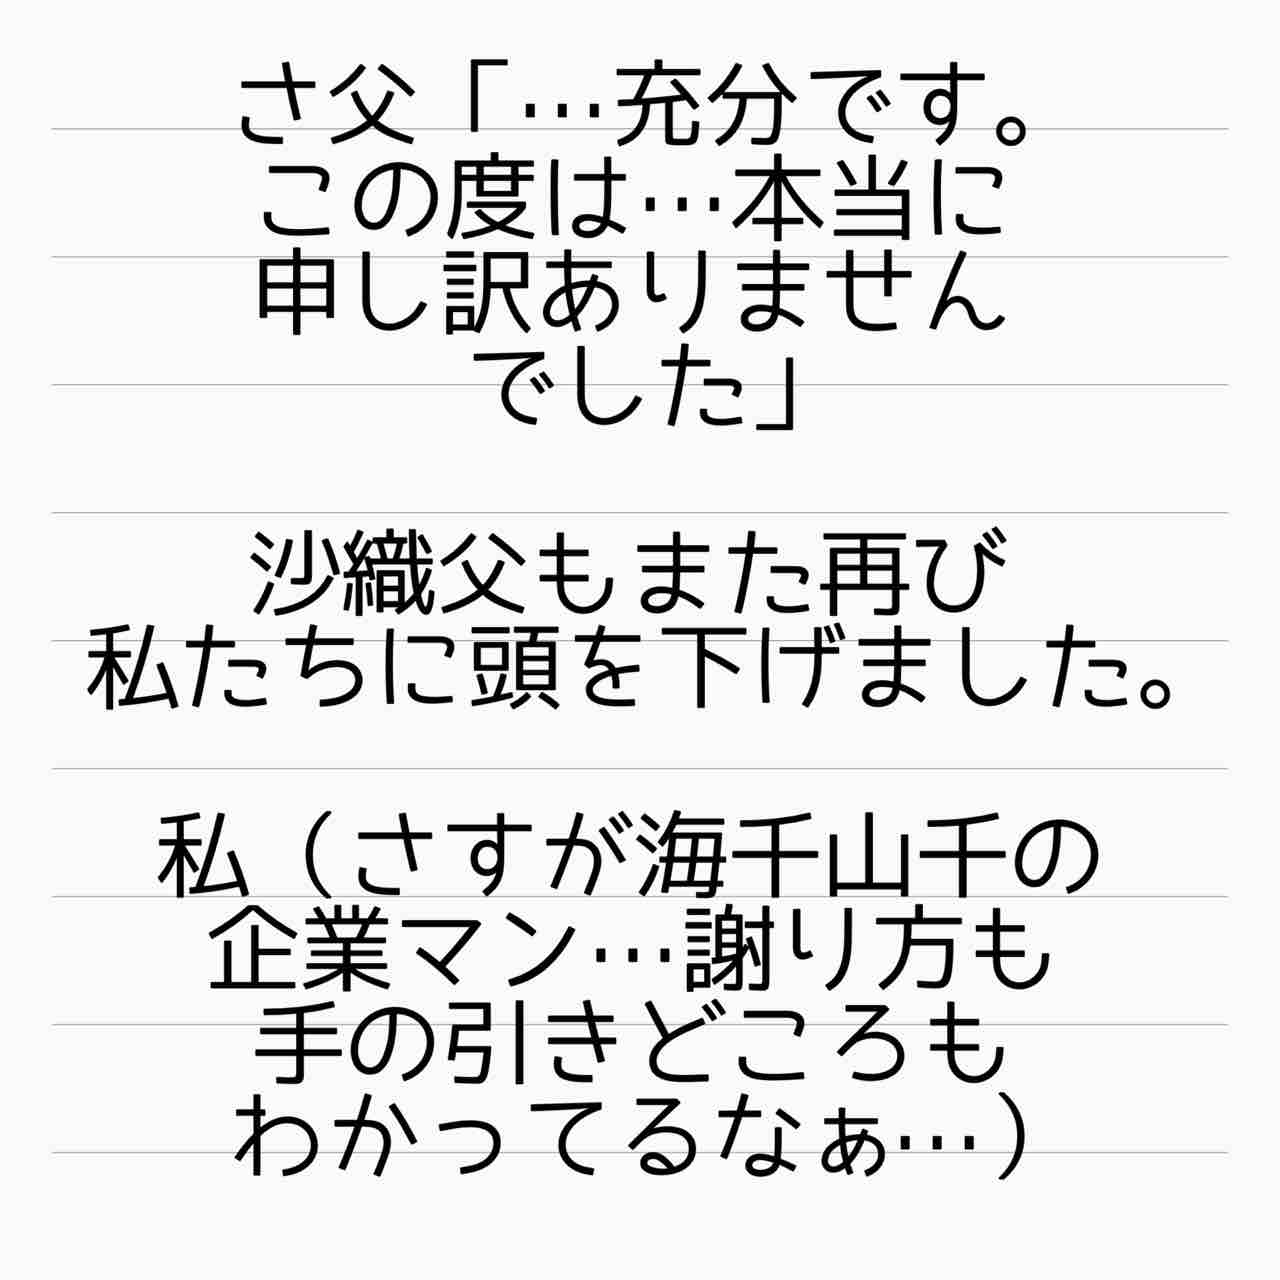 さ父「…充分です。
この度は…本当に
申し訳ありません
でした」
沙織父もまた再び
私たちに頭を下げました。
私（さすが海千山千の
企業マン…謝り方も
手の引きどころも
わかってるなぁ…）